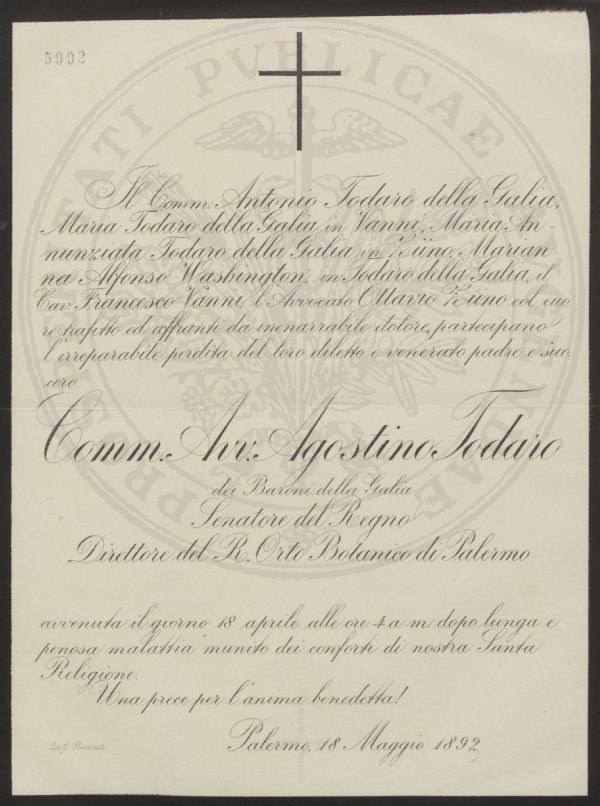 5992
PROSPERITATI PVBLICAE AVGENDAE
Il Comm. Antonio Todaro della Galia,
Maria Todaro della Galia in Vanni, Maria An-
nunziata Todaro della Galia in Riino, Marian-
na Alfonso Washington, in Todaro della Galia, il
Cav. Francesco Vanni, l'Avvocato Ottavio Riino col cuo
re trafitto ed affranti da inenarrabile dolore, partecipano
l'irreparabile perdita del loro diletto e venerato padre e suo-
cero
Comm. Avv. Agostino Todaro
dei Baroni della Galia
Senatore del Regno
Direttore del R. Orto Botanico di Palermo
avvenuta il giorno 18 aprile alle ore 4 a m dopo lunga e
penosa malattia munito dei conforti di nostra Santa
Religione.
Una prece per l'anima benedetta!
Palermo, 18 Maggio 1892